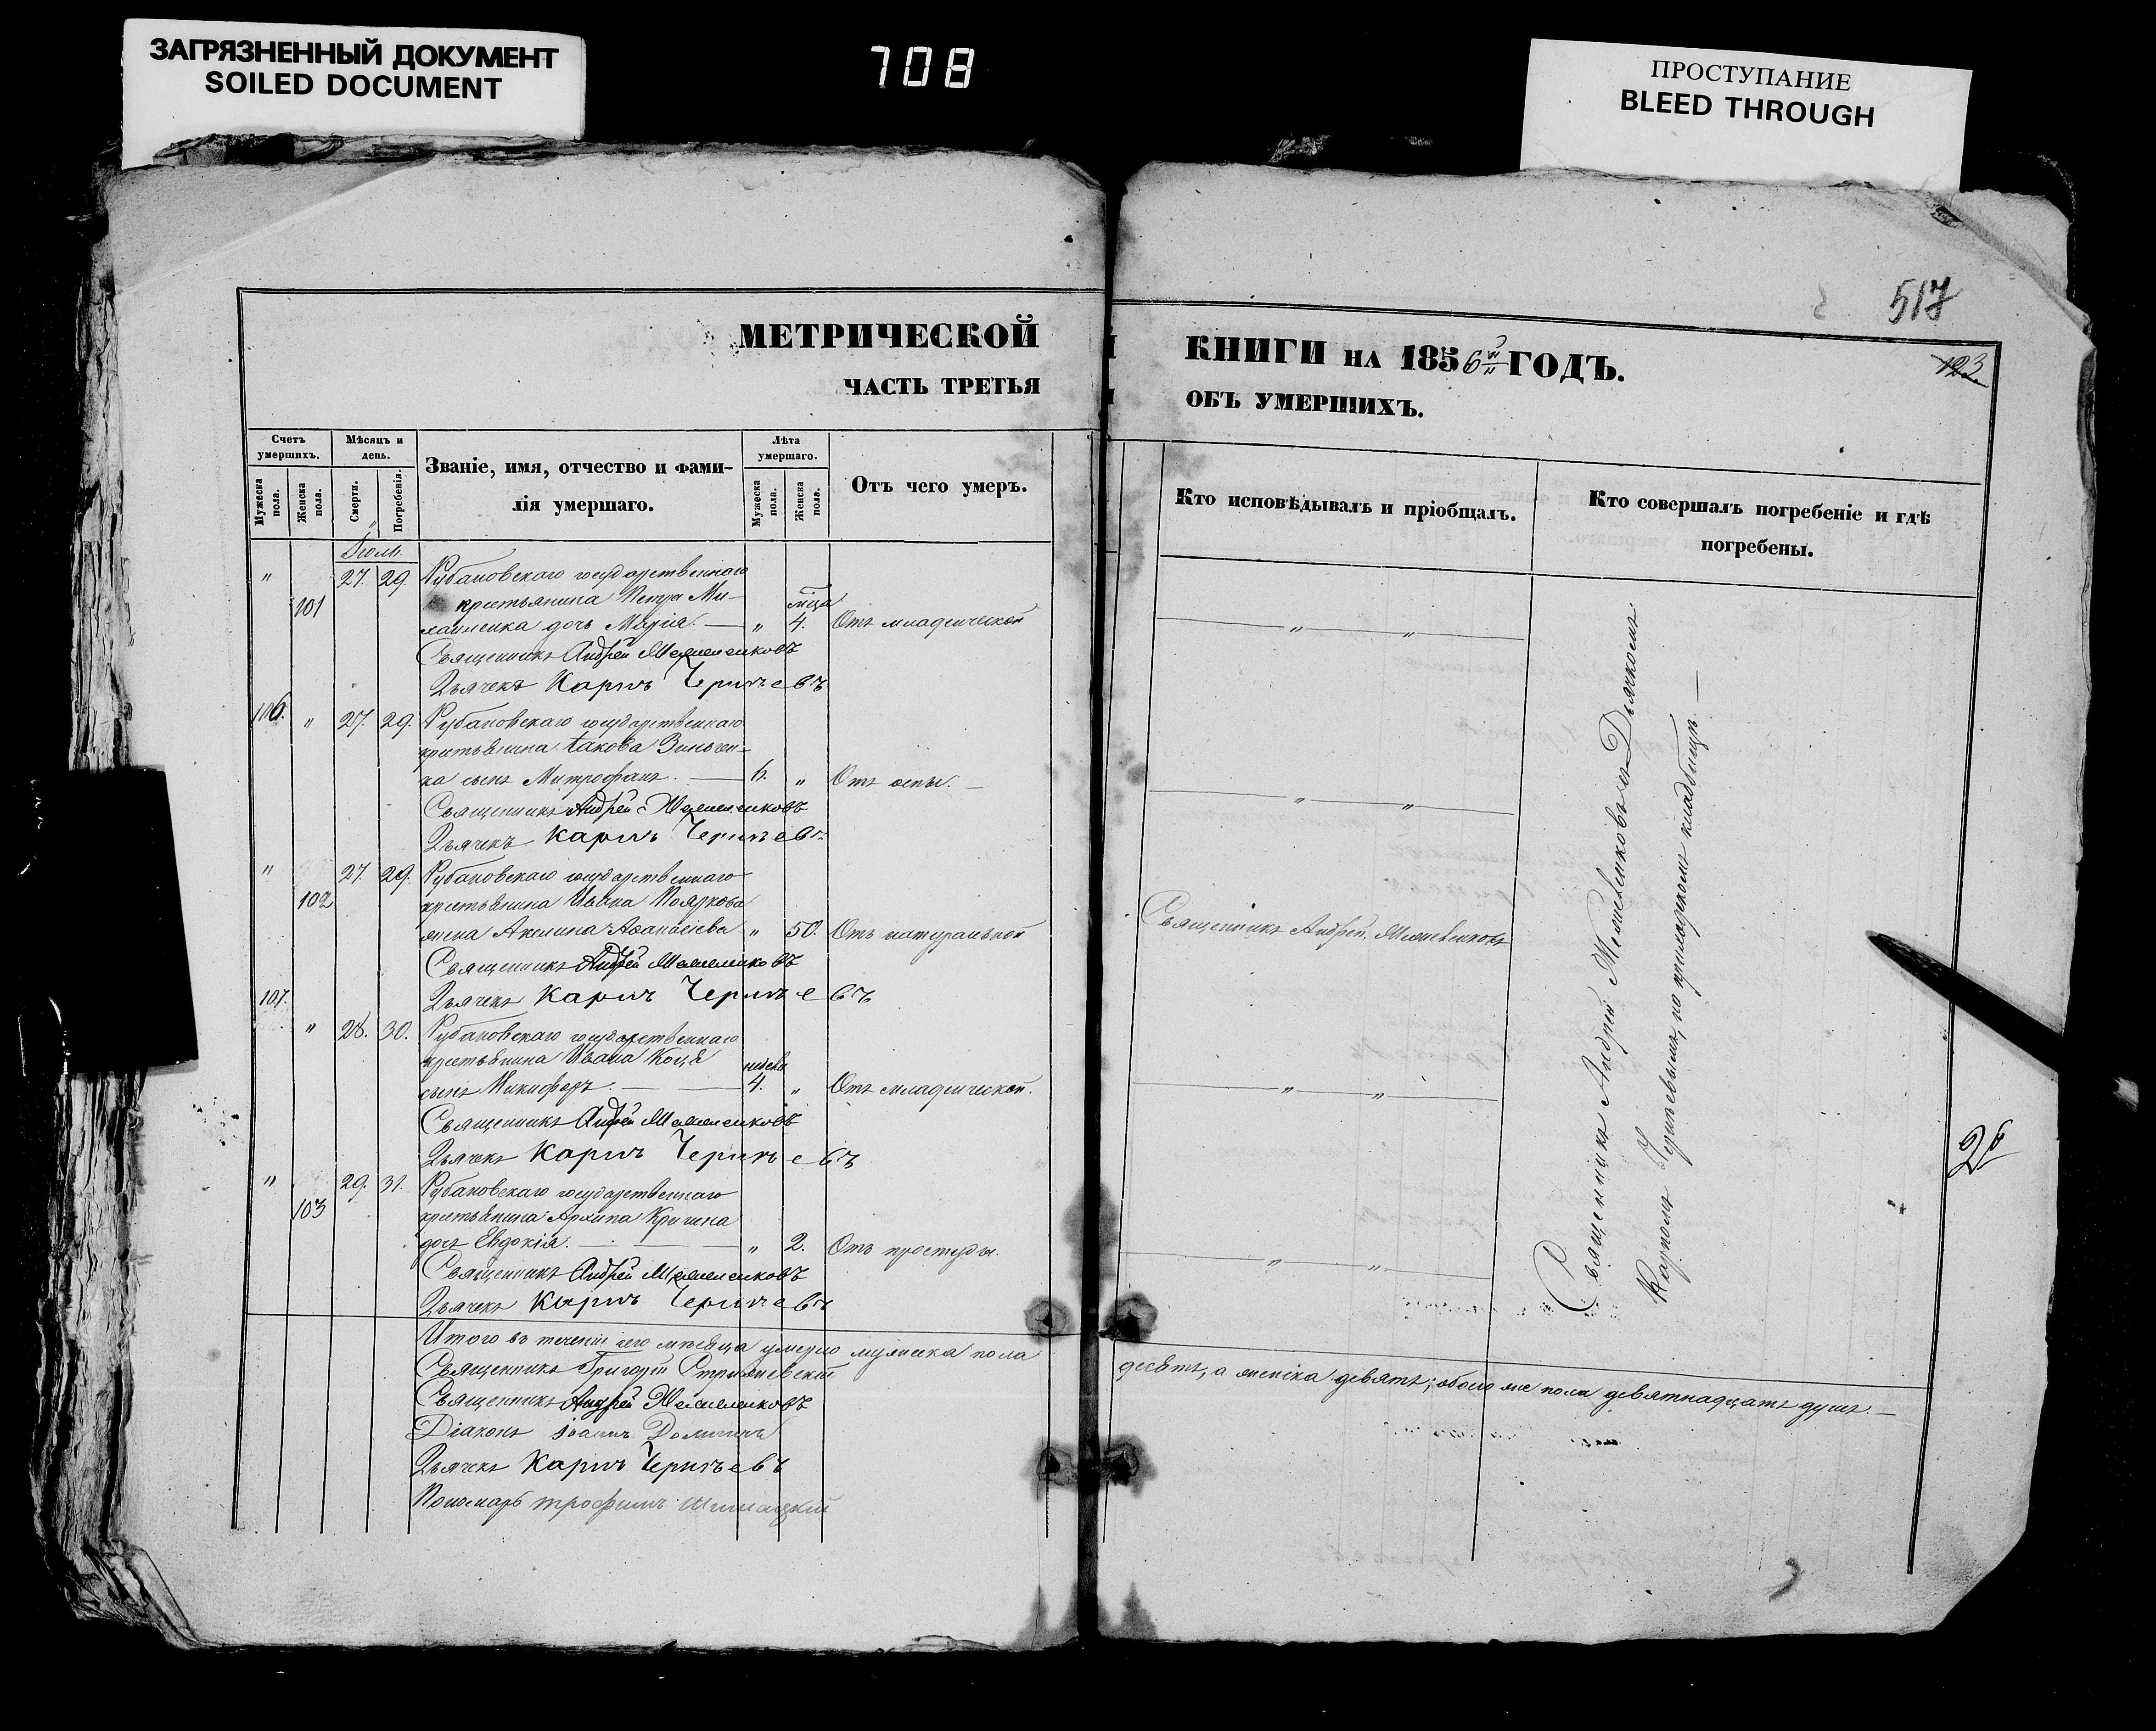 ЗАГРЯЗНЕННЫЙ ДОКУМЕНТ
SOILED DOCUMENT
708
ПРОСТУПАНИЕ
BLEED THROUGH
517
123
МЕТРИЧЕСКОЙ
КНИГИ НА 1856й ГОДЪ.
ЧАСТЬ ТРЕТЬЯ
ОБЪ УМЕРШИХЪ.
Счетъ умершихъ.
Мужеска пола.
Женска пола.
Мѣсяцъ и день.
Смерти.
Погребенія.
Званіе, имя, отчество и фами-
лія умершаго.
Лѣта умершаго.
Мужеска пола.
Женска пола.
Отъ чего умеръ.
Кто исповѣдывалъ и пріобщалъ.
Кто совершалъ погребеніе и гдѣ
погребены.
Іюль
" 27. 29. Рубановскаго государственнаго
101 крестьянина Петра Ми- мца
хайленка дочь Марія. — " 4. Отъ младенческой — " — " —
Священникъ Андрей Мешенковъ
Дьячекъ Карпъ Черничевъ
106. " 27. 29. Рубановскаго государственнаго
крестьянина Іакова Зинчен-
ка сынъ Митрофанъ. — 6. " Отъ оспы. — " — " —
Священникъ Андрей Мешенковъ
Дьячекъ Карпъ Черничевъ
" 27. 29. Рубановскаго государственнаго
102 крестьянина Ивана Пояркова
жена Акилина Аѳанасіева " 50. Отъ натуральной Священникъ Андрей Мешенковъ
Священникъ Андрей Мешенковъ
107. Дьячекъ Карпъ Черничевъ
" 28. 30. Рубановскаго государственнаго
крестьянина Ивана Коця недѣли
сынъ Никифоръ. — 4. " Отъ младенческой. — " — " —
Священникъ Андрей Мешенковъ
Дьячекъ Карпъ Черничевъ
" 29. 31. Рубановскаго государственнаго
103 крестьянина Архипа
дочь Евдокія. — " 2. Отъ простуды. — " — " —
Священникъ Андрей Мешенковъ
Дьячекъ Карпъ Черничевъ
Священникъ Андрей Мешенковъ съ Дьячкомъ
Карпомъ Черничевымъ, на приходскомъ кладбищѣ. —
Итого въ теченіи сего мѣсяца умерло мужеска пола десять, а женска девять; обоего же пола девятнадцать душъ. —
Священникъ Григорій
Священникъ Андрей Мешенковъ
Діаконъ Іоаннъ
Дьячекъ Карпъ Черничевъ
Пономарь Трофимъ